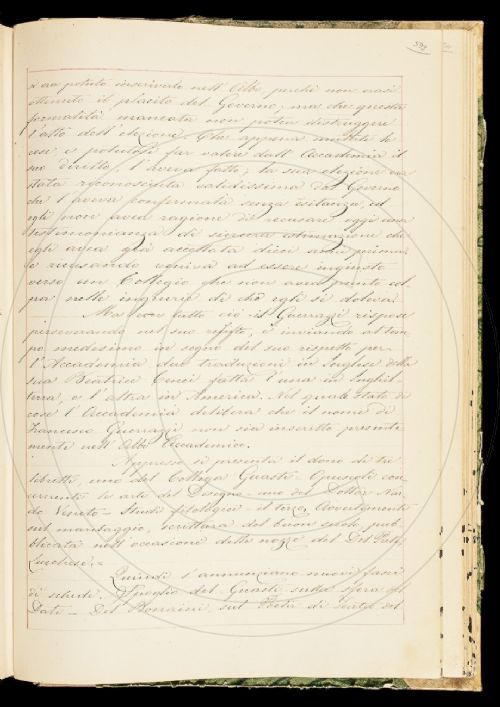 potuto inscriverlo nell'Albo perché non avea
ottenuto il placito del Governo; ma che questa
formalità mancata non potea distruggere
l'atto dell'elezione. Che appena mutate le
cose e potutosi far valere dall'Accademia il
suo diritto, l'avea fatto; la sua elezione era
stata riconosciuta validissima dal Governo
che l'aveva confermata senza istanza, ed
egli non avea ragione di recusare oggi una
testimonianza di sincera estimazione che
egli avea già accettata dieci anni prima;
e ricusando veniva ad essere ingiusto
verso un Collegio che non avea punto col-
pa nelle ingiurie di che egli si doleva.
Ma con tutto ciò il Guerrazzi rispose
perseverando nel suo rifiuto, e inviando al tem-
po medesimo in segno del suo rispetto per
l'Accademia due traduzioni in Inglese della
sua Beatrice Cenci fatta l'una in Inghil-
terra, e l'altra in America. Nel quale stato di
cose l'Accademia delibera che il nome di
Francesco Guerrazzi non sia inscritto presente-
mente nell'Albo Accademico.
Appresso si presenta il dono di tre
libretti, uno del Collega Guasti - Opuscoli con-
cernenti le arti del Disegno - uno del Dottor Nar-
do Veneto - Studi filologici - il terzo, Avvertimenti
sul maritaggio, scrittura del buon secolo pub-
blicata nell'occasione delle nozze del
Lucchese. =
Quindi s'annunziano nuovi fasci
di schede. Spoglio del Guasti sulla sfera del
Dati - Del Bonaini, sul del